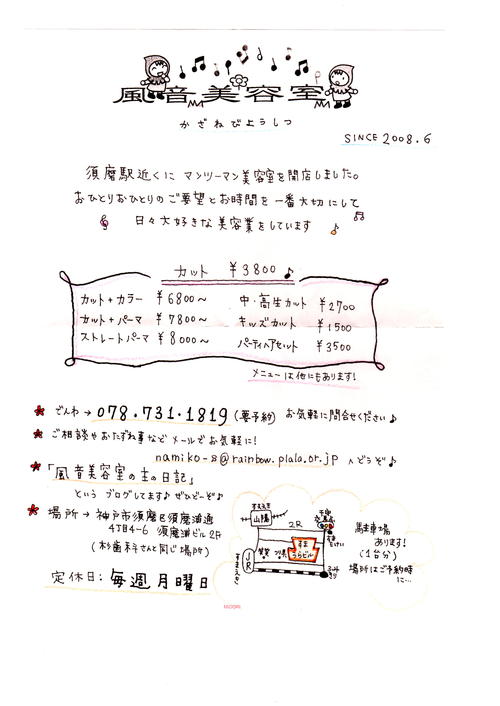 風音美容室
かざねびようしつ
SINCE 2008.6
須磨駅近くに マンツーマン美容室を開店しました。
おひとりおひとりのご要望とお時間を一番大切にして
日々大好きな美容業をしています
カット ¥3800
カット+カラー ¥6800〜
中・高生カット ¥2700
カット+パーマ ¥7800〜
キッズカット ¥1500
ストレートパーマ ¥8000〜
パーティヘアセット ¥3500
メニューは他にもあります!
でんわ→078.731.1819(要予約) お気軽に問合せください♪
ご相談やおたずね事など メールでお気軽に!
namiko-8@rainbow.plala.or.jp へどうぞ♪
「風音美容室の主の日記」
という ブログしてます♪ ぜひどーぞ♪
場所→神戸市須磨区須磨浦通
4丁目4-6 須磨浦ビル2F
(杉歯茅子さんと同じ場所)
定休日:毎週月曜日
山陽
2R
JR
駐車場
あります!
(1台分)
場所はご予約時
に…